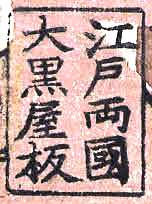 江戸両國
大黒屋板